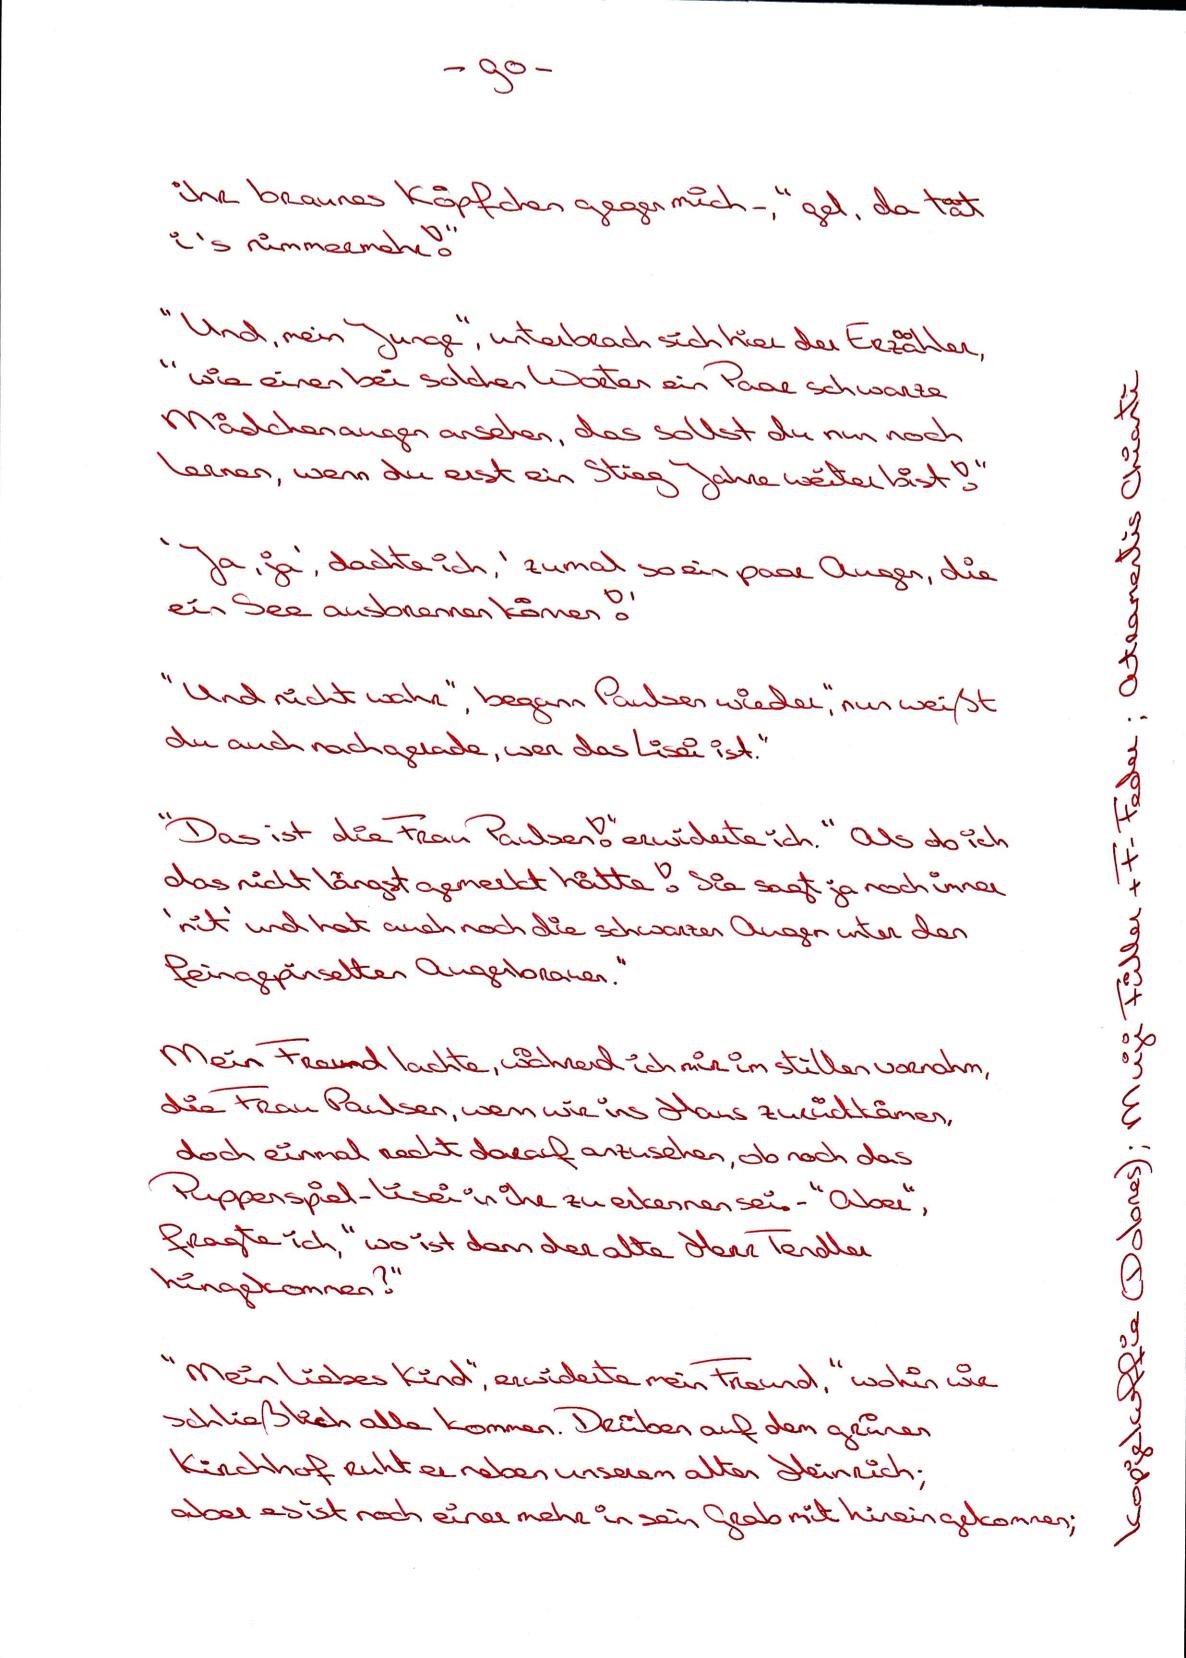 - 90 -
ihr braunes Köpfchen gegen mich -, "gel, da tät
i's nimmermehr!"
"Und, mein Junge", unterbrach sich hier der Erzähler,
"wie einen bei solchen Worten ein Paar schwarze
Mädchenaugen ansehen, das sollst du nun noch
lernen, wenn du erst ein Stieg Jahre weiter bist!"
'Ja, ja', dachte ich, 'zumal so ein paar Augen, die
ein See ausbrennen können!'
"Und nicht wahr", begann Paulsen wieder, "nun weißt
du auch nachgerade, wer das Lisei ist."
"Das ist die Frau Paulsen!" erwiderte ich. "Als ob ich
das nicht längst gemerkt hätte! Sie sagt ja noch immer
'nit' und hat auch noch die schwarzen Augen unter den
feingepinselten Augenbrauen."
Mein Freund lachte, während ich mir im stillen vornahm,
die Frau Paulsen, wenn wir ins Haus zurückkämen,
doch einmal recht darauf anzusehen, ob noch das
Puppenspiel-Lisei in ihr zu erkennen sei. - "Aber",
fragte ich, "wo ist denn der alte Herr Tendler
hingekommen?"
"Mein liebes Kind", erwiderte mein Freund, "wohin wir
schließlich alle kommen. Drüben auf dem grünen
Kirchhof ruht er neben unserem alten Heinrich;
aber es ist noch einer mehr in sein Grab mit hineingekommen;
Muji Füller + F-Feder; Atramentis Chianti